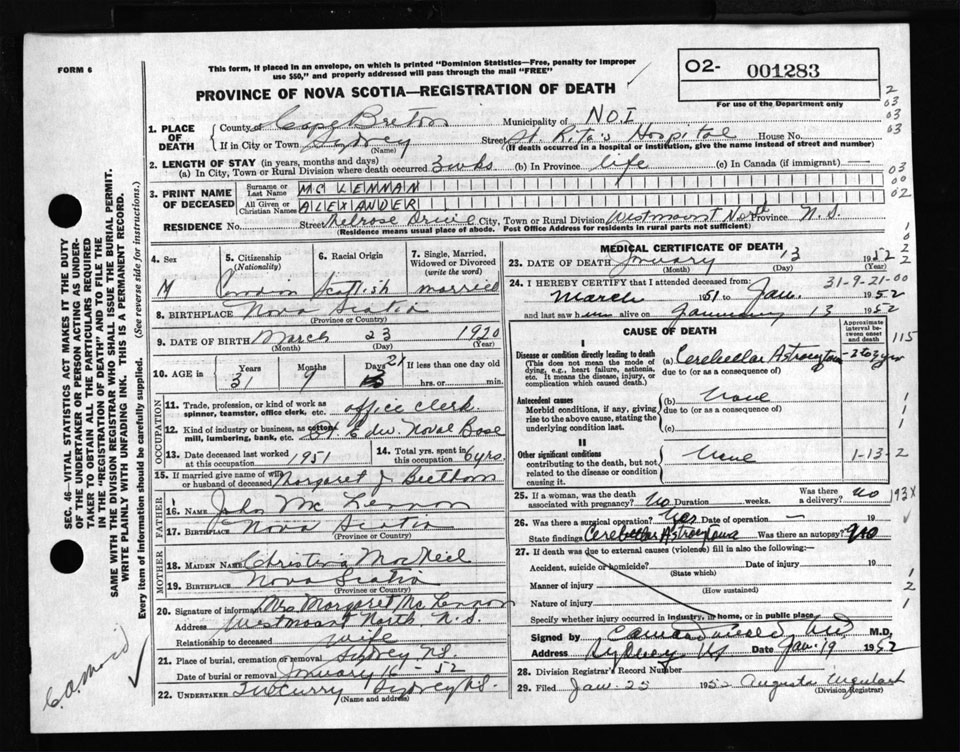 FORM 6
This form, if placed in an envelope, on which is printed "Dominion Statistics—Free, penalty for improper
use $50," and properly addressed will pass through the mail "FREE"
PROVINCE OF NOVA SCOTIA—REGISTRATION OF DEATH
O2- 001283
For use of the Department only
2
03
03
03
1. PLACE OF DEATH
County of Cape Breton Municipality of NO I
If in City or Town Sydney Street St. Rita's Hospital House No.
(Name) (If death occurred in a hospital or institution, give the name instead of street and number)
2. LENGTH OF STAY (in years, months and days)
(a) In City, Town or Rural Division where death occurred 3 wks (b) In Province life (c) In Canada (if immigrant) —
03
00
02
3. PRINT NAME OF DECEASED
Surname or Last Name McLENNAN
All Given or Christian Names ALEXANDER
RESIDENCE No. Street Melrose Drive City, Town or Rural Division Westmount North Province N.S.
(Residence means usual place of abode. Post Office Address for residents in rural parts not sufficient)
4. Sex
M
5. Citizenship
(Nationality)
6. Racial Origin
Scottish
7. Single, Married,
Widowed or Divorced
(write the word)
married
8. BIRTHPLACE Nova Scotia
(Province or Country)
9. DATE OF BIRTH March 23 1920
(Month) (Day) (Year)
10. AGE in Years Months Days If less than one day old
31 9 21 hrs. or min.
OCCUPATION
11. Trade, profession, or kind of work as
spinner, teamster, office clerk, etc. office clerk
12. Kind of industry or business, as cotton
mill, lumbering, bank, etc. Naval Base
13. Date deceased last worked
at this occupation 1951
14. Total yrs. spent in
this occupation 6 yrs.
15. If married give name of wife
or husband of deceased Margaret J
FATHER
16. NAME John Mc Lennon
17. BIRTHPLACE Nova Scotia
(Province or Country)
MOTHER
18. MAIDEN NAME Christina MacNeil
19. BIRTHPLACE Nova Scotia
(Province or Country)
20. Signature of informant Mrs. Margaret McLennon
Address Westmount North, N.S.
Relationship to deceased wife
21. Place of burial, cremation or removal Sydney NS.
Date of burial or removal January 16 - 52
22. UNDERTAKER T W Curry Sydney N.S.
(Name and address)
MEDICAL CERTIFICATE OF DEATH
23. DATE OF DEATH January 13 1952
(Month) (Day) (Year)
31-9-21-00
24. I HEREBY CERTIFY that I attended deceased from:
March 1951 to Jan. 1952
and last saw him alive on January 13 1952
CAUSE OF DEATH
Approximate
interval be-
tween onset
and death
115
I
Disease or condition directly leading to death
(This does not mean the mode of
dying, e.g., heart failure, asthenia,
etc. It means the disease, injury, or
complication which caused death.)
(a) Cerebellar Astrocytoma - 2 to 3 yrs
due to (or as a consequence of)
Antecedent causes
Morbid conditions, if any, giving
rise to the above cause, stating the
underlying condition last.
(b) None
due to (or as a consequence of)
(c)
II
Other significant conditions
contributing to the death, but not
related to the disease or condition
causing it.
None
1-13-2
25. If a woman, was the death
associated with pregnancy? No Duration weeks. Was there a delivery? no
193X
26. Was there a surgical operation? Yes Date of operation — 19
State findings Cerebellar Astrocytoma Was there an autopsy? no
27. If death was due to external causes (violence) fill in also the following:—
Accident, suicide or homicide? Date of injury 19
(State which)
Manner of injury
(How sustained)
Nature of injury
1
2
1
Specify whether injury occurred in industry, in home, or in public place.
Signed by M.D.
Address Sydney NS Date Jan. 19 1952
28. Division Registrar's Record Number
29. Filed Jan 23 1952 Augusta Urquhart
(Division Registrar)
SEC. 46—VITAL STATISTICS ACT MAKES IT THE DUTY
OF THE UNDERTAKER OR PERSON ACTING AS UNDER-
TAKER TO OBTAIN ALL THE PARTICULARS REQUIRED
IN THE "REGISTRATION OF DEATH" AND TO FILE THE
SAME WITH THE DIVISION REGISTRAR WHO SHALL ISSUE THE BURIAL PERMIT.
WRITE PLAINLY WITH UNFADING INK. THIS IS A PERMANENT RECORD.
Every item of information should be carefully supplied. (See reverse side for instructions.)